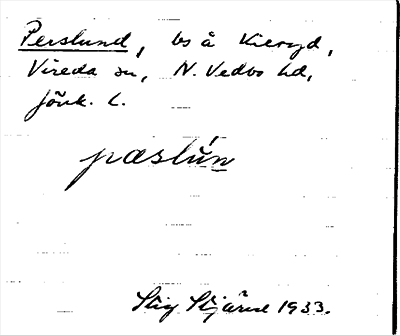 Perslund, bs å Kieryd,
Vireda sn, N. Vedbo hd,
Jönk. L.
pæslún
Stig Stjärne 1933.